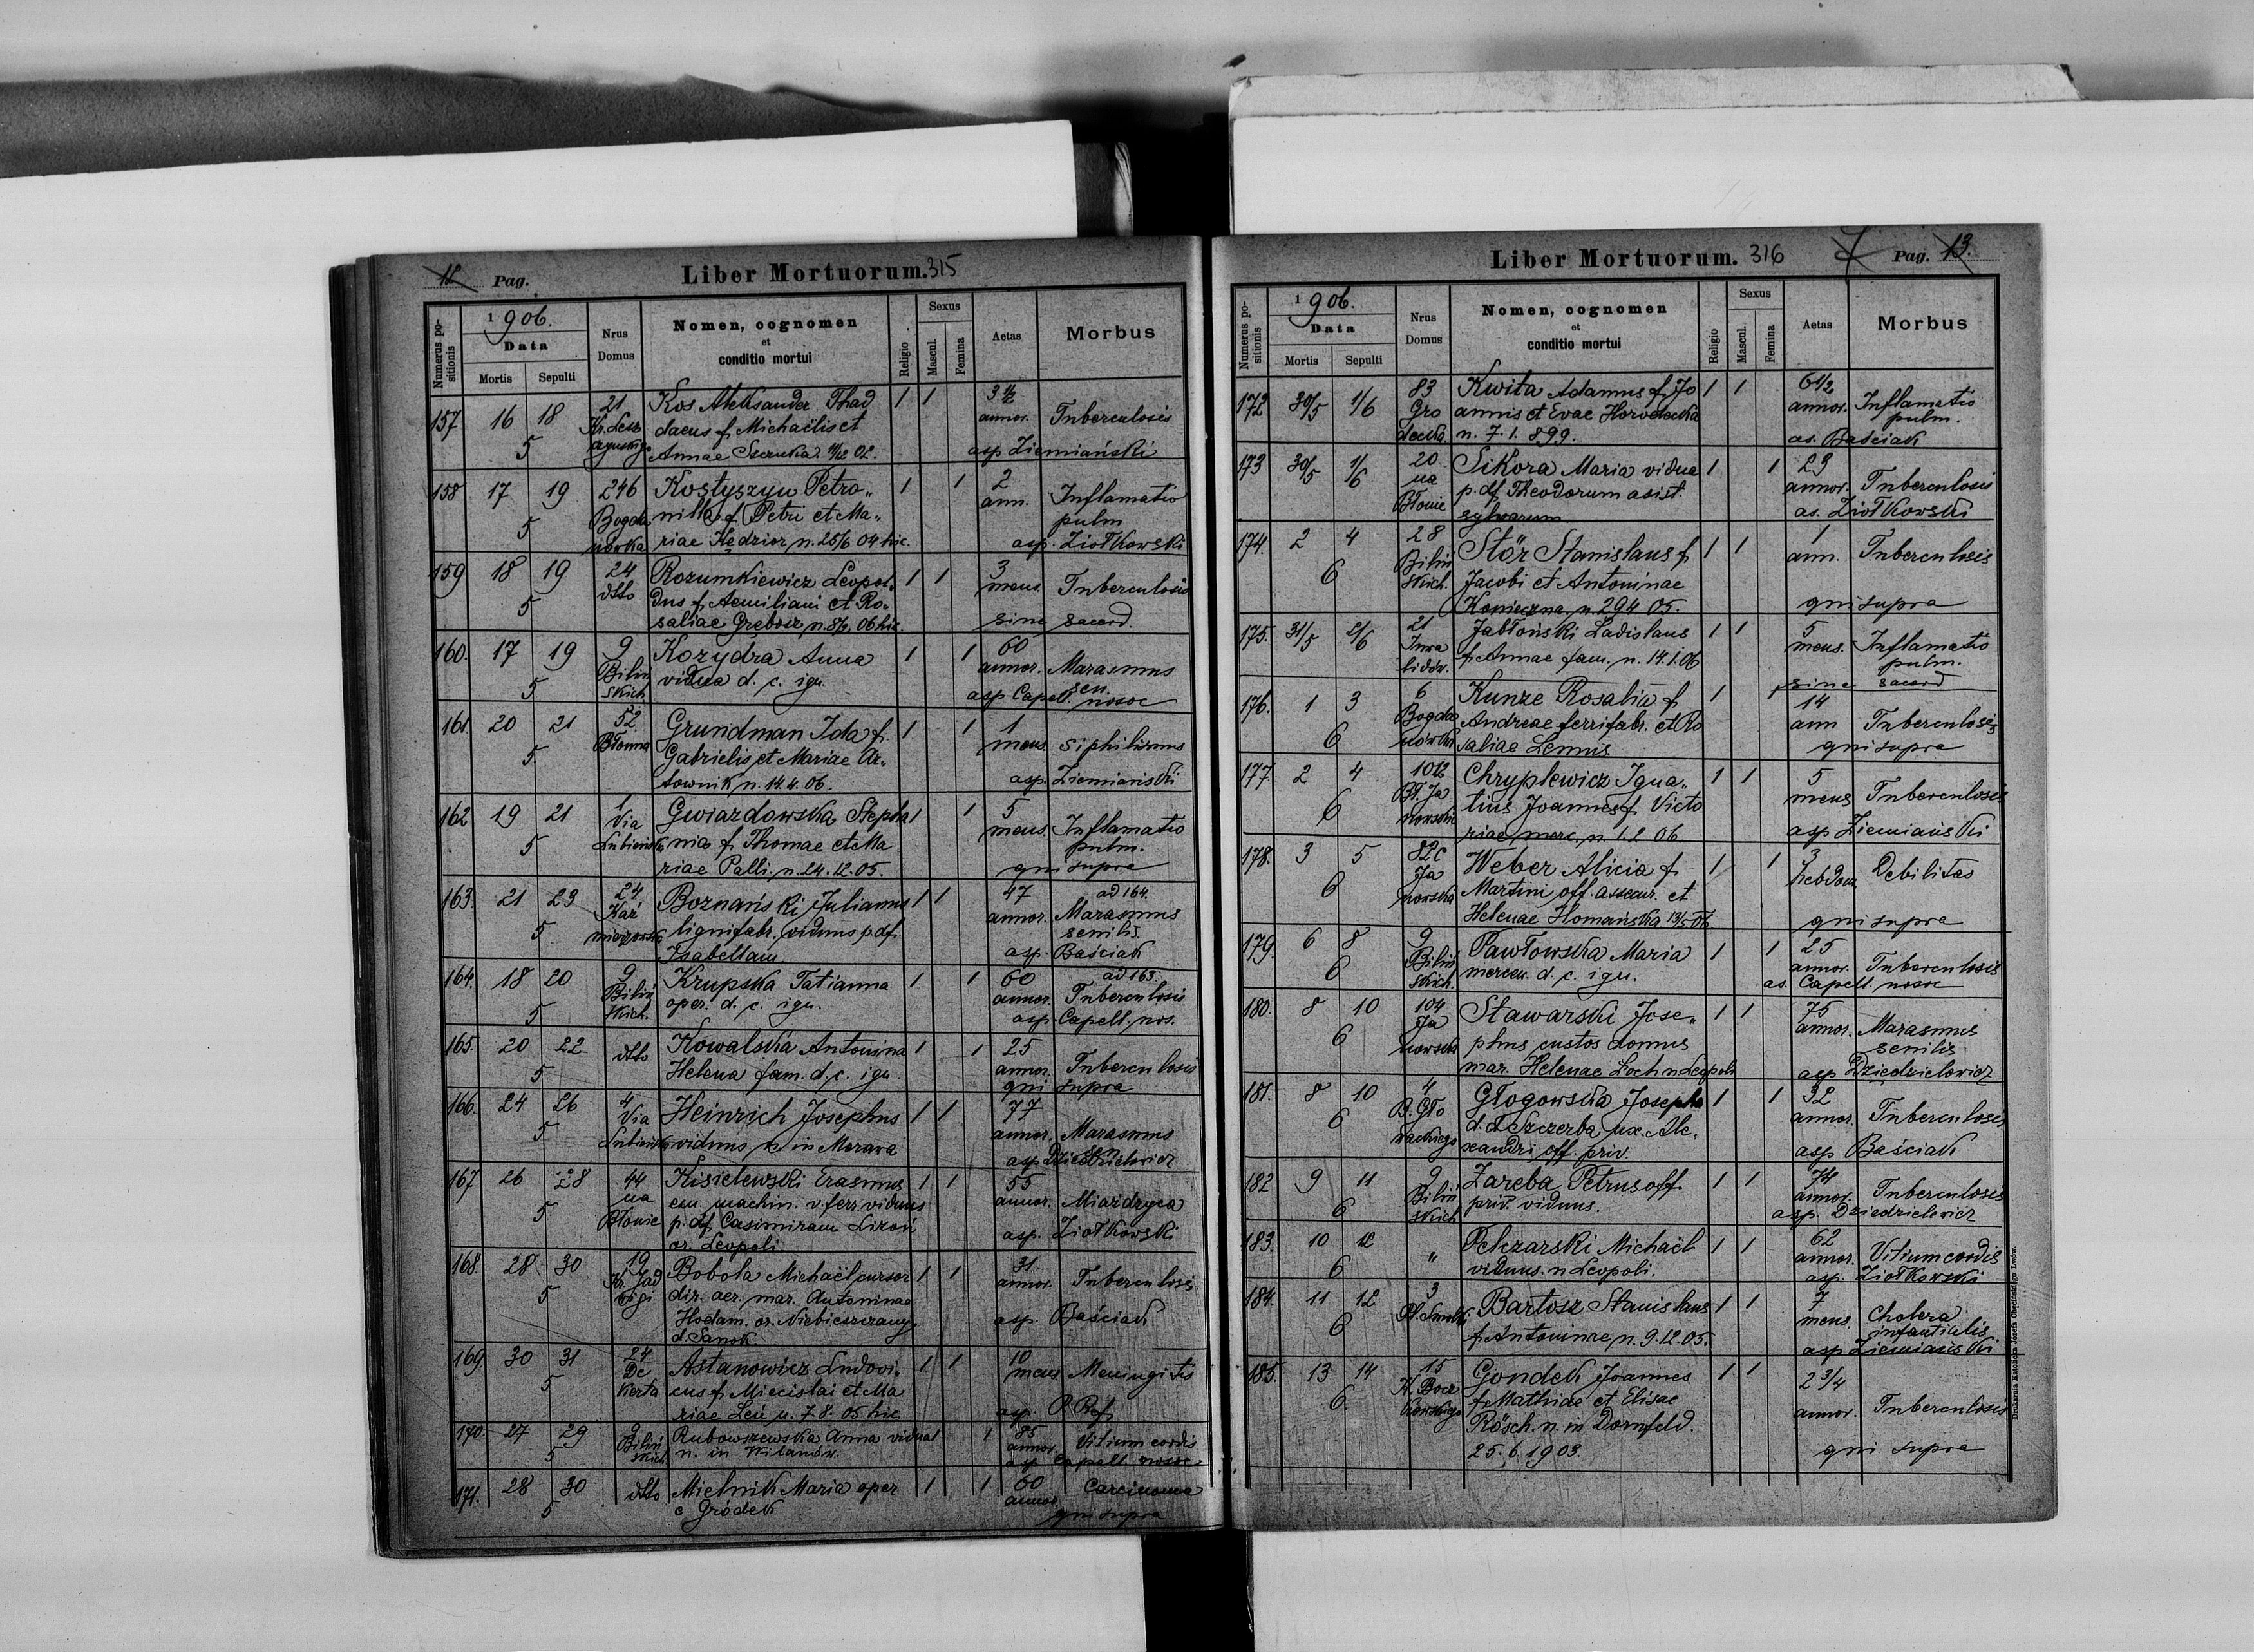 Pag.
Liber Mortuorum. 315
Numerus positionis
1906.
Data
Mortis
Sepulti
Nrus Domus
Nomen, cognomen
et
conditio mortui
Religio
Sexus
Mascul.
Femina
Aetas
Morbus
157 16 18 21 Kos Aleksander Thad 1 1 3 1/2
daeus f. Michaëlis et annor. Tuberculosis
5 Annae Szczuka 02. asp Ziemiański
158 17 19 246 Kostyszyn Petro„ 1 1 2
Bogda nilla f. Petri et Ma„ ann. Inflamatio
5 pulm
nówka riae Kędzior n. 25/6 04 hic. asp. Ziołkowski
159 18 19 24 Rozumkiewicz Leopol„ 1 1 3
dtto dus f. Aemiliani et Ro„ mens. Tuberculosis
5 saliae n. 06 hic. sine sacerd.
160. 17 19 9 Kozydra Anna 1 1 60
Biliń vidua d. c. ign. annor. Marasmus
5 skich sen.
asp Capell. nosoc
161 20 21 52 Grundman Ida f. 1 1 1
Błonna Gabrielis et Mariae Ar„ mens. Siphilismus
5 townik n. 14.4.06. asp. Ziemiański
162 19 21 1 Gwiazdowska Stepha 1 1 5
Via nia f. Thomae et Ma mens. Inflamatio
5 pulm.
riae Palli. n. 24.12.05. qui supra
163. 21 23 24 Boznański Julianus 1 1 47 ad 164.
Kaź lignifabr. viduus p. df. annor. Marasmus
5 senilis.
Isabellam. asp. Baściak
164. 18 20 9 Krupska Tatianna 1 1 60 ad 163.
Biliń oper. d. c. ign. annor. Tuberculosis
5 skich. asp. Capell. nos.
165. 20 22 dtto Kowalska Antonina 1 1 25
5 Helena fam. d. c. ign. annor. Tuberculosis
qui supra
166. 24 26 4 Heinrich Josephus 1 1 77
Via viduus n. in Morava annor. Marasmus
5 asp Dziedzielewicz
167 26 28 44 Kisielewski Erasmus 1 1 55
na em. machin. v. ferr. viduus annor. Miazdzyca
5 Błonie p. df. Casimiram Lizoń asp. Ziołkowski
or. Leopoli
168. 28 30 19 Bobola Michaël cursor 1 1 31
Kr. Jad dir. aer. mar. Antoninae annor. Tuberculosis
5 wigi Hodam. or. Niebieszczany asp. Baściak
d. Sanok
169. 30 31 24 Astanowicz Ludovi„ 1 1 10
De cus f. Miecislai et Ma mens Meningitis
5 kerta riae Leń n. 7.8.05 hic asp. P. Ref.
170. 27 29 9 Rubowszewska Anna vidua 1 1 85
Biliń n. in Wilanów. annor. Vitium cordis
5 skich asp Capell nosoc
171. 28 30 dtto Mielnik Maria oper 1 1 60 Carcinoma
5 c Gródek annor. qui supra
Liber Mortuorum. 316
Pag. 13.
Numerus positionis
1906.
Data
Mortis
Sepulti
Nrus Domus
Nomen, cognomen
et
conditio mortui
Religio
Sexus
Mascul.
Femina
Aetas
Morbus
172 30/5 1/6 83 Kwita Adamus f. Jo 1 1 6 1/2
Gro annis et Evae annor. Inflamatio
pulm.
decka n. 7.1.899. as. Baściak
173 30/5 1/6 20 Sikora Maria vidua 1 1 23
na p. df. Theodorum asist. annor. Tuberculosis
Błonie sylvarum as. Ziołkowski
174. 2 4 28 Stör Stanislaus f. 1 1 1
Biliń Jacobi et Antoninae ann. Tuberculosis
6 skich. Konieczna n. 29 4 05. qui supra
175. 31/5 2/6 21 Jabłoński Ladislaus 1 1 5
Inwa f. Annae fam. n. 14.1.06 mens. Inflamatio
lidów. pulm.
sine sacerd
176. 1 3 6 Kunze Rosalia f. 1 14
Bogda Andreae ferrifabr. et Ro ann Tuberculosis
6 nówka saliae Lemus qui supra
177. 2 4 Chryplewicz Igna„ 1 1 5
6 tius Joannes f. Victo mens Tuberculosis
riae merc. n. 1.2 06. asp Ziemiański
178. 3 5 82c Weber Alicia f. 1 1 3
Ja Martini off. assecur. et hebdom Debilitas
6 nowska Helenae Homańska 13/5 06 qui supra
179. 6 8 9 Pawłowska Maria 1 1 25
Biliń mercen. d. c. ign. annor. Tuberculosis
6 skich. as. Capell. nosoc
180. 8 10 104 Stawarski Jose„ 1 1 75
Ja phus custos domus annor. Marasmus
6 senilis
nowska mar. Helenae Loch n Leopoli asp Dziedzielewicz
181. 8 10 4 Głogowska Josepha 1 1 32
B. Gło d. d Szczerba ux. Ale„ annor. Tuberculosis
6 wackiego xandri off. priv. asp Baściak
182 9 11 9 Zaręba Petrus off 1 1 74
Biliń priv. viduus. annor. Tuberculosis
6 skich asp. Dziedzielewicz
183. 10 12 „ Pelczarski Michaël 1 1 62
6 viduus. n Leopoli. annor. Vitium cordis
asp. Ziołkowski
184. 11 12 3 Bartosz Stanislaus 1 1 7
6 f. Antoninae n. 9.12.05. mens. Cholera
infantialis.
asp Ziemiański
185. 13 14 15 Gondek Joannes 1 1 2 3/4
6 f. Mathiae et Elisae annor. Tuberculosis
Rösch. n. in Dornfeld. qui supra
25.6.1903.
Drukarnia Katolicka Józefa Chęcińskiego Lwów.